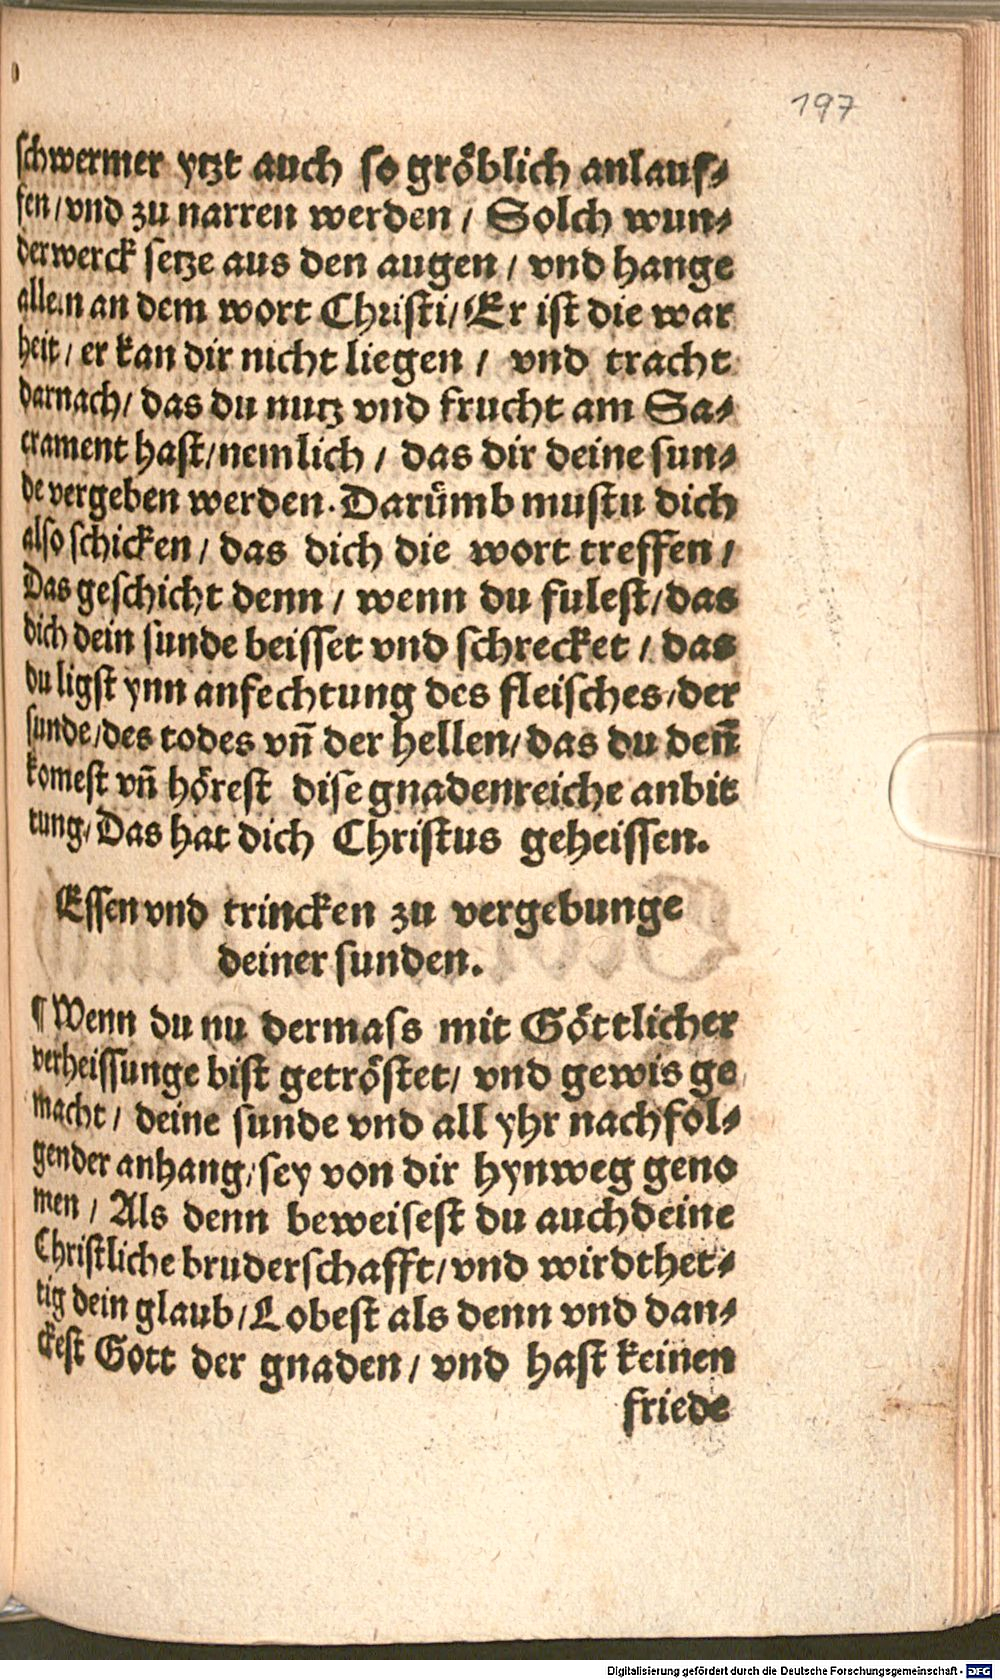 197
schwermer ytzt auch so gröblich anlauf⸗
fen / vnd zu narren werden / Solch wun⸗
derwerck setze aus den augen / vnd hange
allein an dem wort Christi / Er ist die war
heit / er kan dir nicht liegen / vnd tracht
darnach / das du nutz vnd frucht am Sa⸗
crament hast / nemlich / das dir deine sun⸗
de vergeben werden. Darümb mustu dich
also schicken / das dich die wort treffen /
Das geschicht denn / wenn du fulest / das
dich dein sunde beisset vnd schrecket / das
du ligst ynn anfechtung des fleisches / der
sunde / des todes vn̄ der hellen / das du den̄
komest vn̄ hörest dise gnadenreiche anbit
tung / Das hat dich Christus geheissen.
Essen vnd trincken zu vergebunge
deiner sunden.
¶ Wenn du nu dermass mit Göttlicher
verheissunge bist getröstet / vnd gewis ge
macht / deine sunde vnd all yhr nachfol⸗
gender anhang / sey von dir hynweg geno
men / Als denn beweisest du auch deine
Christliche bruderschafft / vnd wird thet⸗
tig dein glaub / Lobest als denn vnd dan⸗
ckest Gott der gnaden / vnd hast keinen
friede
Digitalisierung gefördert durch die Deutsche Forschungsgemeinschaft - DFG